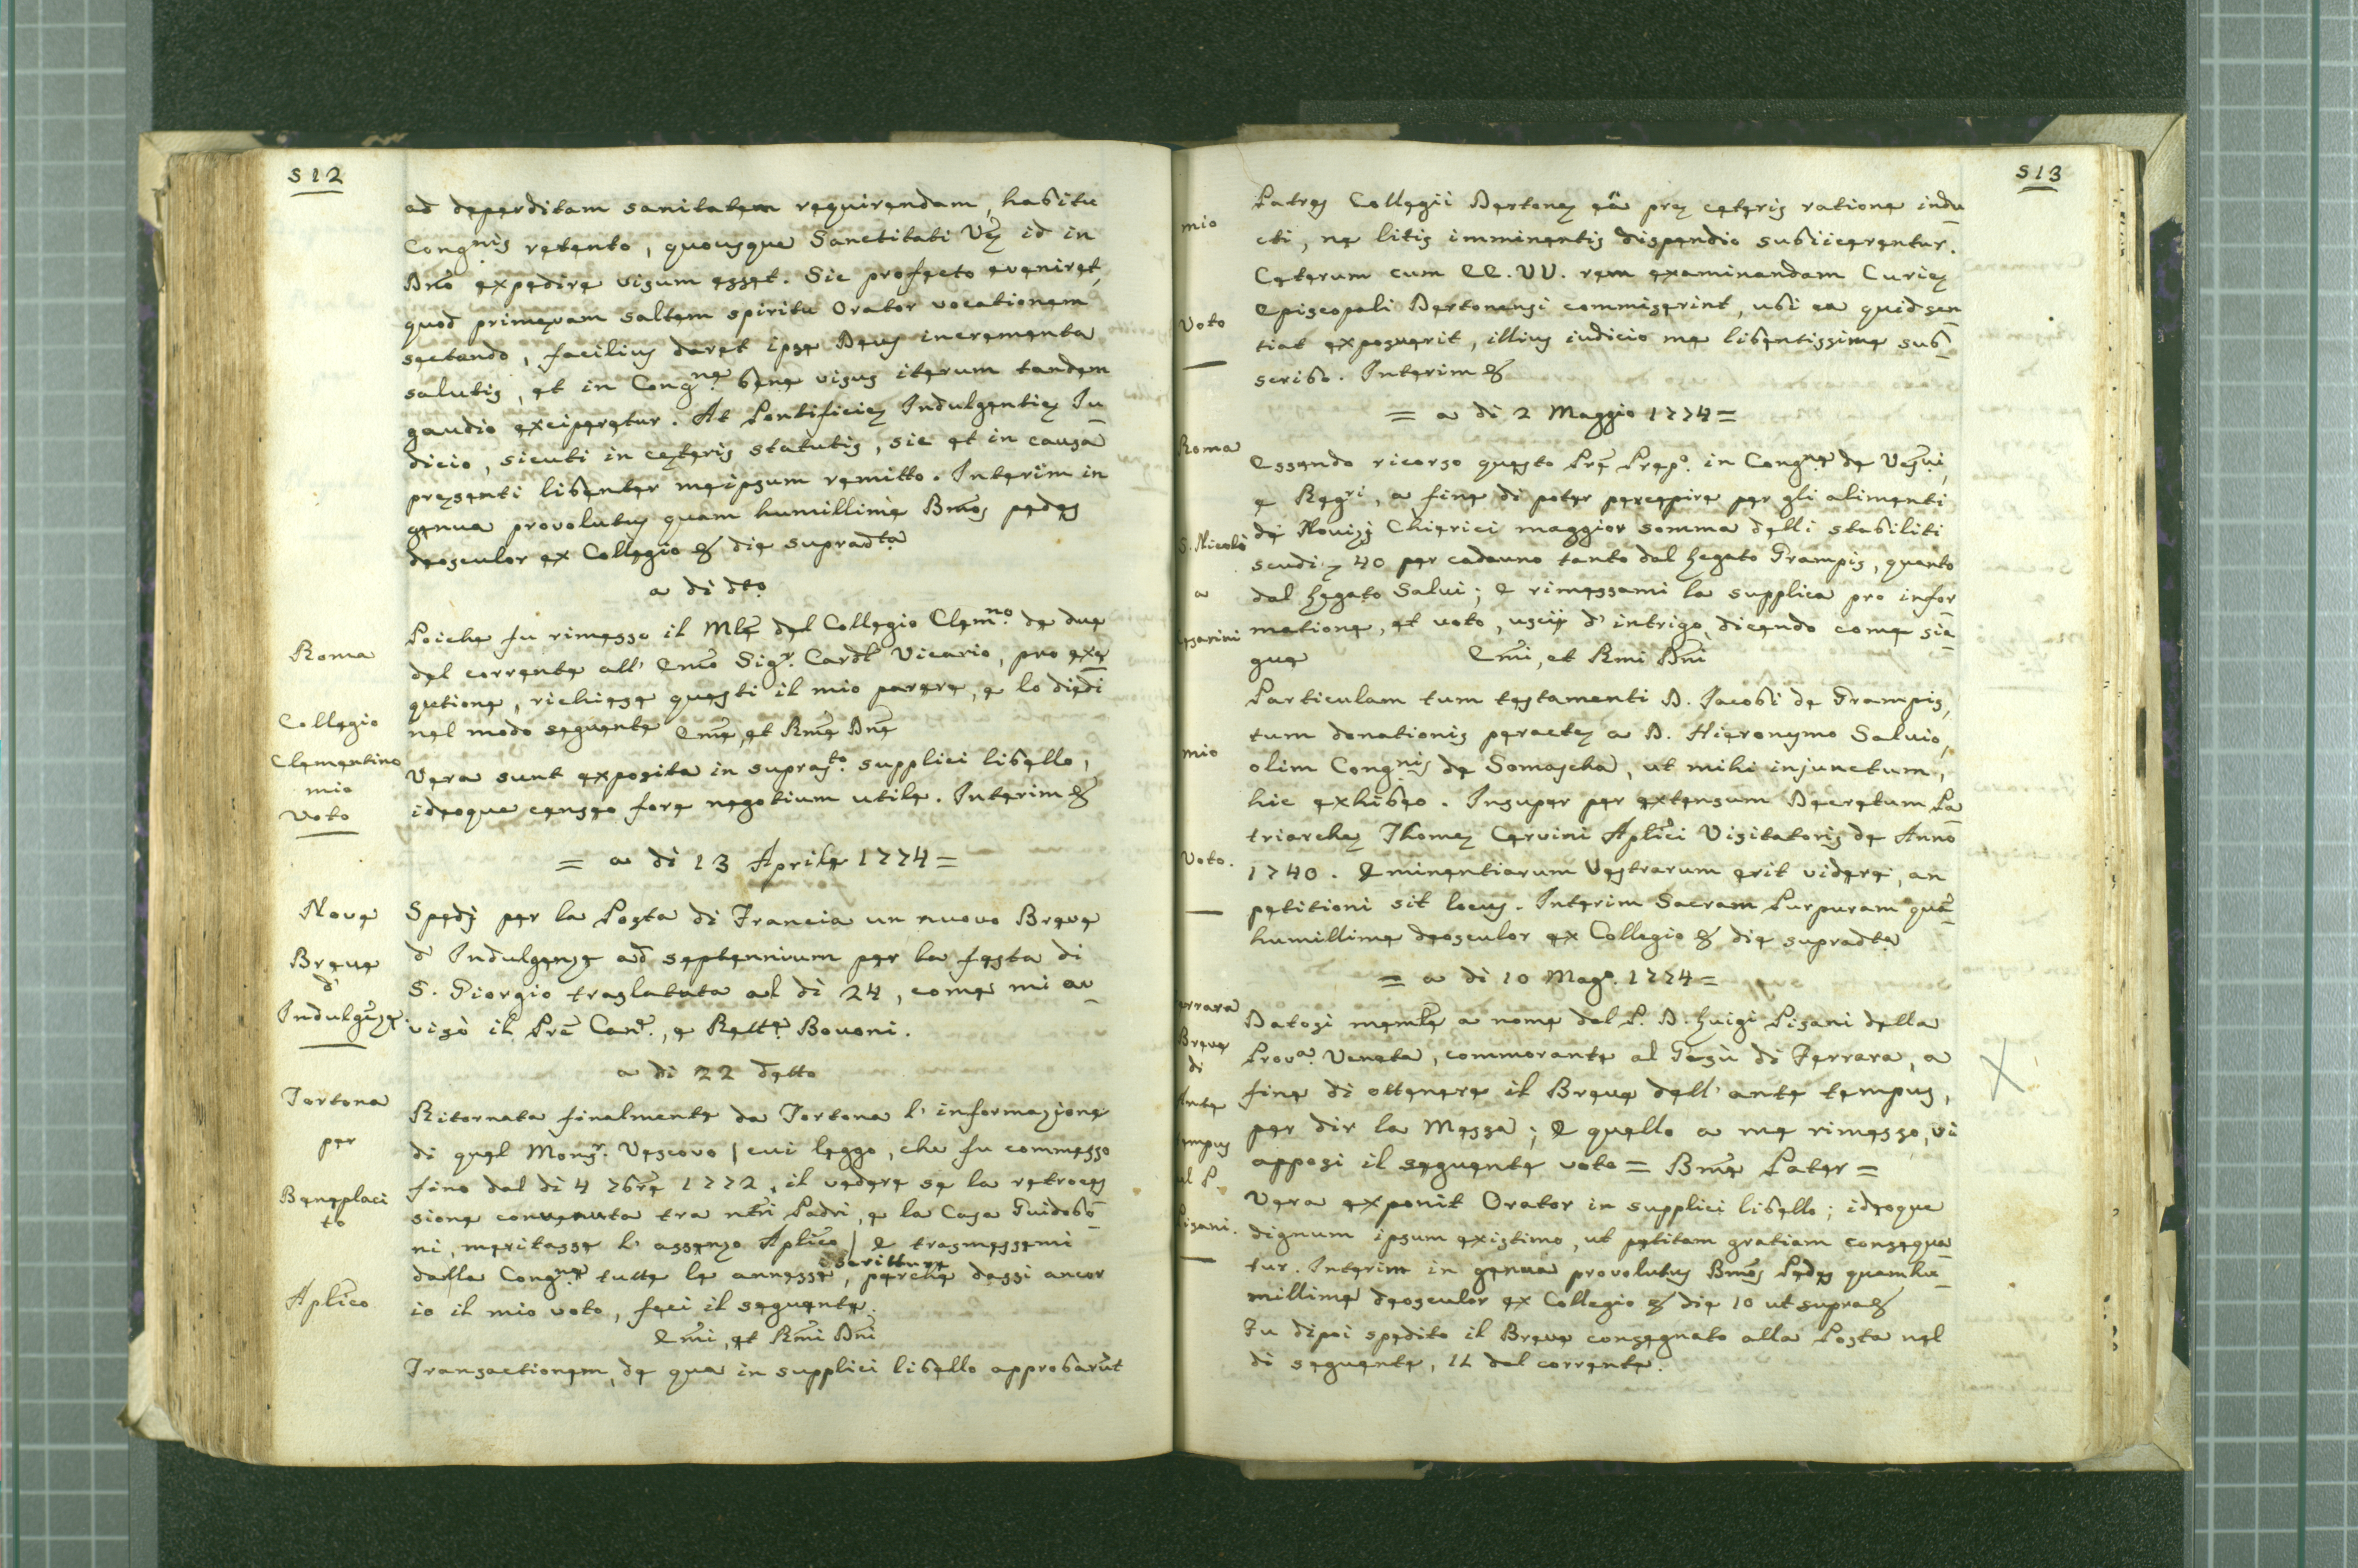 512
ad deperditam sanitatem requirendam, habitu
Congnis retento, quousque Sanctitati Vę id in
Dno expedire visum esset. Sic profecto eveniret,
quod primęvam saltem spiritu Orator vocationem
sectando, facilius daret ipse Deus incrementa
salutis, et in Congne bene visus iterum tandem
gaudio exciperetur. At Pontificię Indulgentię Iu
dicio, sicuti in cęteris statutis, sic et in causa
pręsenti libenter meipsum remitto. Interim in
genua provolutus quam humillimè Bmos pedes
deosculor ex Collegio & die supradta
a dì dto
Roma
Collegio
Clementino
mio
Voto
Poiche fu rimesso il Mle del Collegio Clemno de due
del corrente all' Emo Sigr. Cardl Vicario, pro exe
qutione, richiese questi il mio parere, e lo diedi
nel modo seguente Eme, et Rme Dne
Vera sunt exposita in suprasto. supplici libello,
ideoque censeo fore negotium utile. Interim &
= a dì 13 Aprile 1774 =
Nove
Breve
d'
Indulgẽze
Spedj per la Posta di Francia un nuovo Breve
d' Indulgenze ad septennium per la festa di
S. Giorgio traslatata al dì 24, come mi av
visò il Pre Cane., e Rette Bovoni.
a dì 22 detto
Tortona
per
Beneplaci
to
Aplico
Ritornata finalmente da Tortona l' informazione
di quel Monsr. Vescovo / cui leggo, che fu commesso
fino dal dì 4 7bre 1772, il vedere se la retroces
sione convenuta tra ntri Padri, e la Casa Guidobo
ni, meritasse l' assenso Aplico / E trasmessemi
scritture
dalla Congne tutte le annesse, perche dassi ancor
io il mio voto, feci il seguente.
Emi, et Rmi Dni
Transactionem, de qua in supplici libello approbarũt
513
mio
Voto
Patres Collegii Dertonę eâ prę ceteris ratione indu
cti, ne litis imminentis dispendio subiicerentur.
Ceterum cum EE. VV. rem examinandam Curię
Episcopali Dertonensi commiserint, ubi ea quid sen
tiat exposuerit, illius iudicio me libentissime sub
scribo. Interim &
= a dì 2 Maggio 1774 =
Roma
S. Nicolò
a
esarini
mio
Voto.
Essendo ricorso questo Pre Prepo. in Congne de Vesvi,
e Regri, a fine di poter percepire per gli alimenti
de Novizj Chierici maggior somma delli stabiliti
scudi 40 per cadauno tanto dal Legato Grampis, quanto
dal Legato Salvi; E rimessami la supplica pro infor
matione, et voto, uscij d' intrigo, dicendo come sie
gue Emi, et Rmi Dni
Particulam tum testamenti D. Iacobi de Grampis,
tum donationis peractę a D. Hieronymo Salvio,
olim Congnis de Somascha, ut mihi injunctum,
hic exhibeo. Insuper per extensum Decretum Pa
triarchę Thomę Cervini Aplici Visitatoris de Anno
1740. Eminentiarum Vestrarum erit videre, an
petitioni sit locus. Interim Sacram Purpuram quã
humillime deosculor ex Collegio & die supradta
= a dì 10 Mago. 1774 =
errara
Breve
di
Ante
empus
al P.
Pisani.
Datosi memle a nome del P. D. Luigi Pisani della
Prova. Veneta, commorante al Gesù di Ferrara, a
fine di ottenere il Breve dell' ante tempus,
per dir la Messa; E quello a me rimesso, vi
apposi il seguente voto = Bme Pater =
Vera exponit Orator in supplici libello; ideoque
dignum ipsum existimo, ut petitam gratiam consequa
tur. Interim in genua provolutus Bmos Pedes quam hu
millime deosculor ex Collegio & die 10 ut supra &
Fu dipoi spedito il Breve consegnato alla Posta nel
dì seguente, 11 del corrente.
X